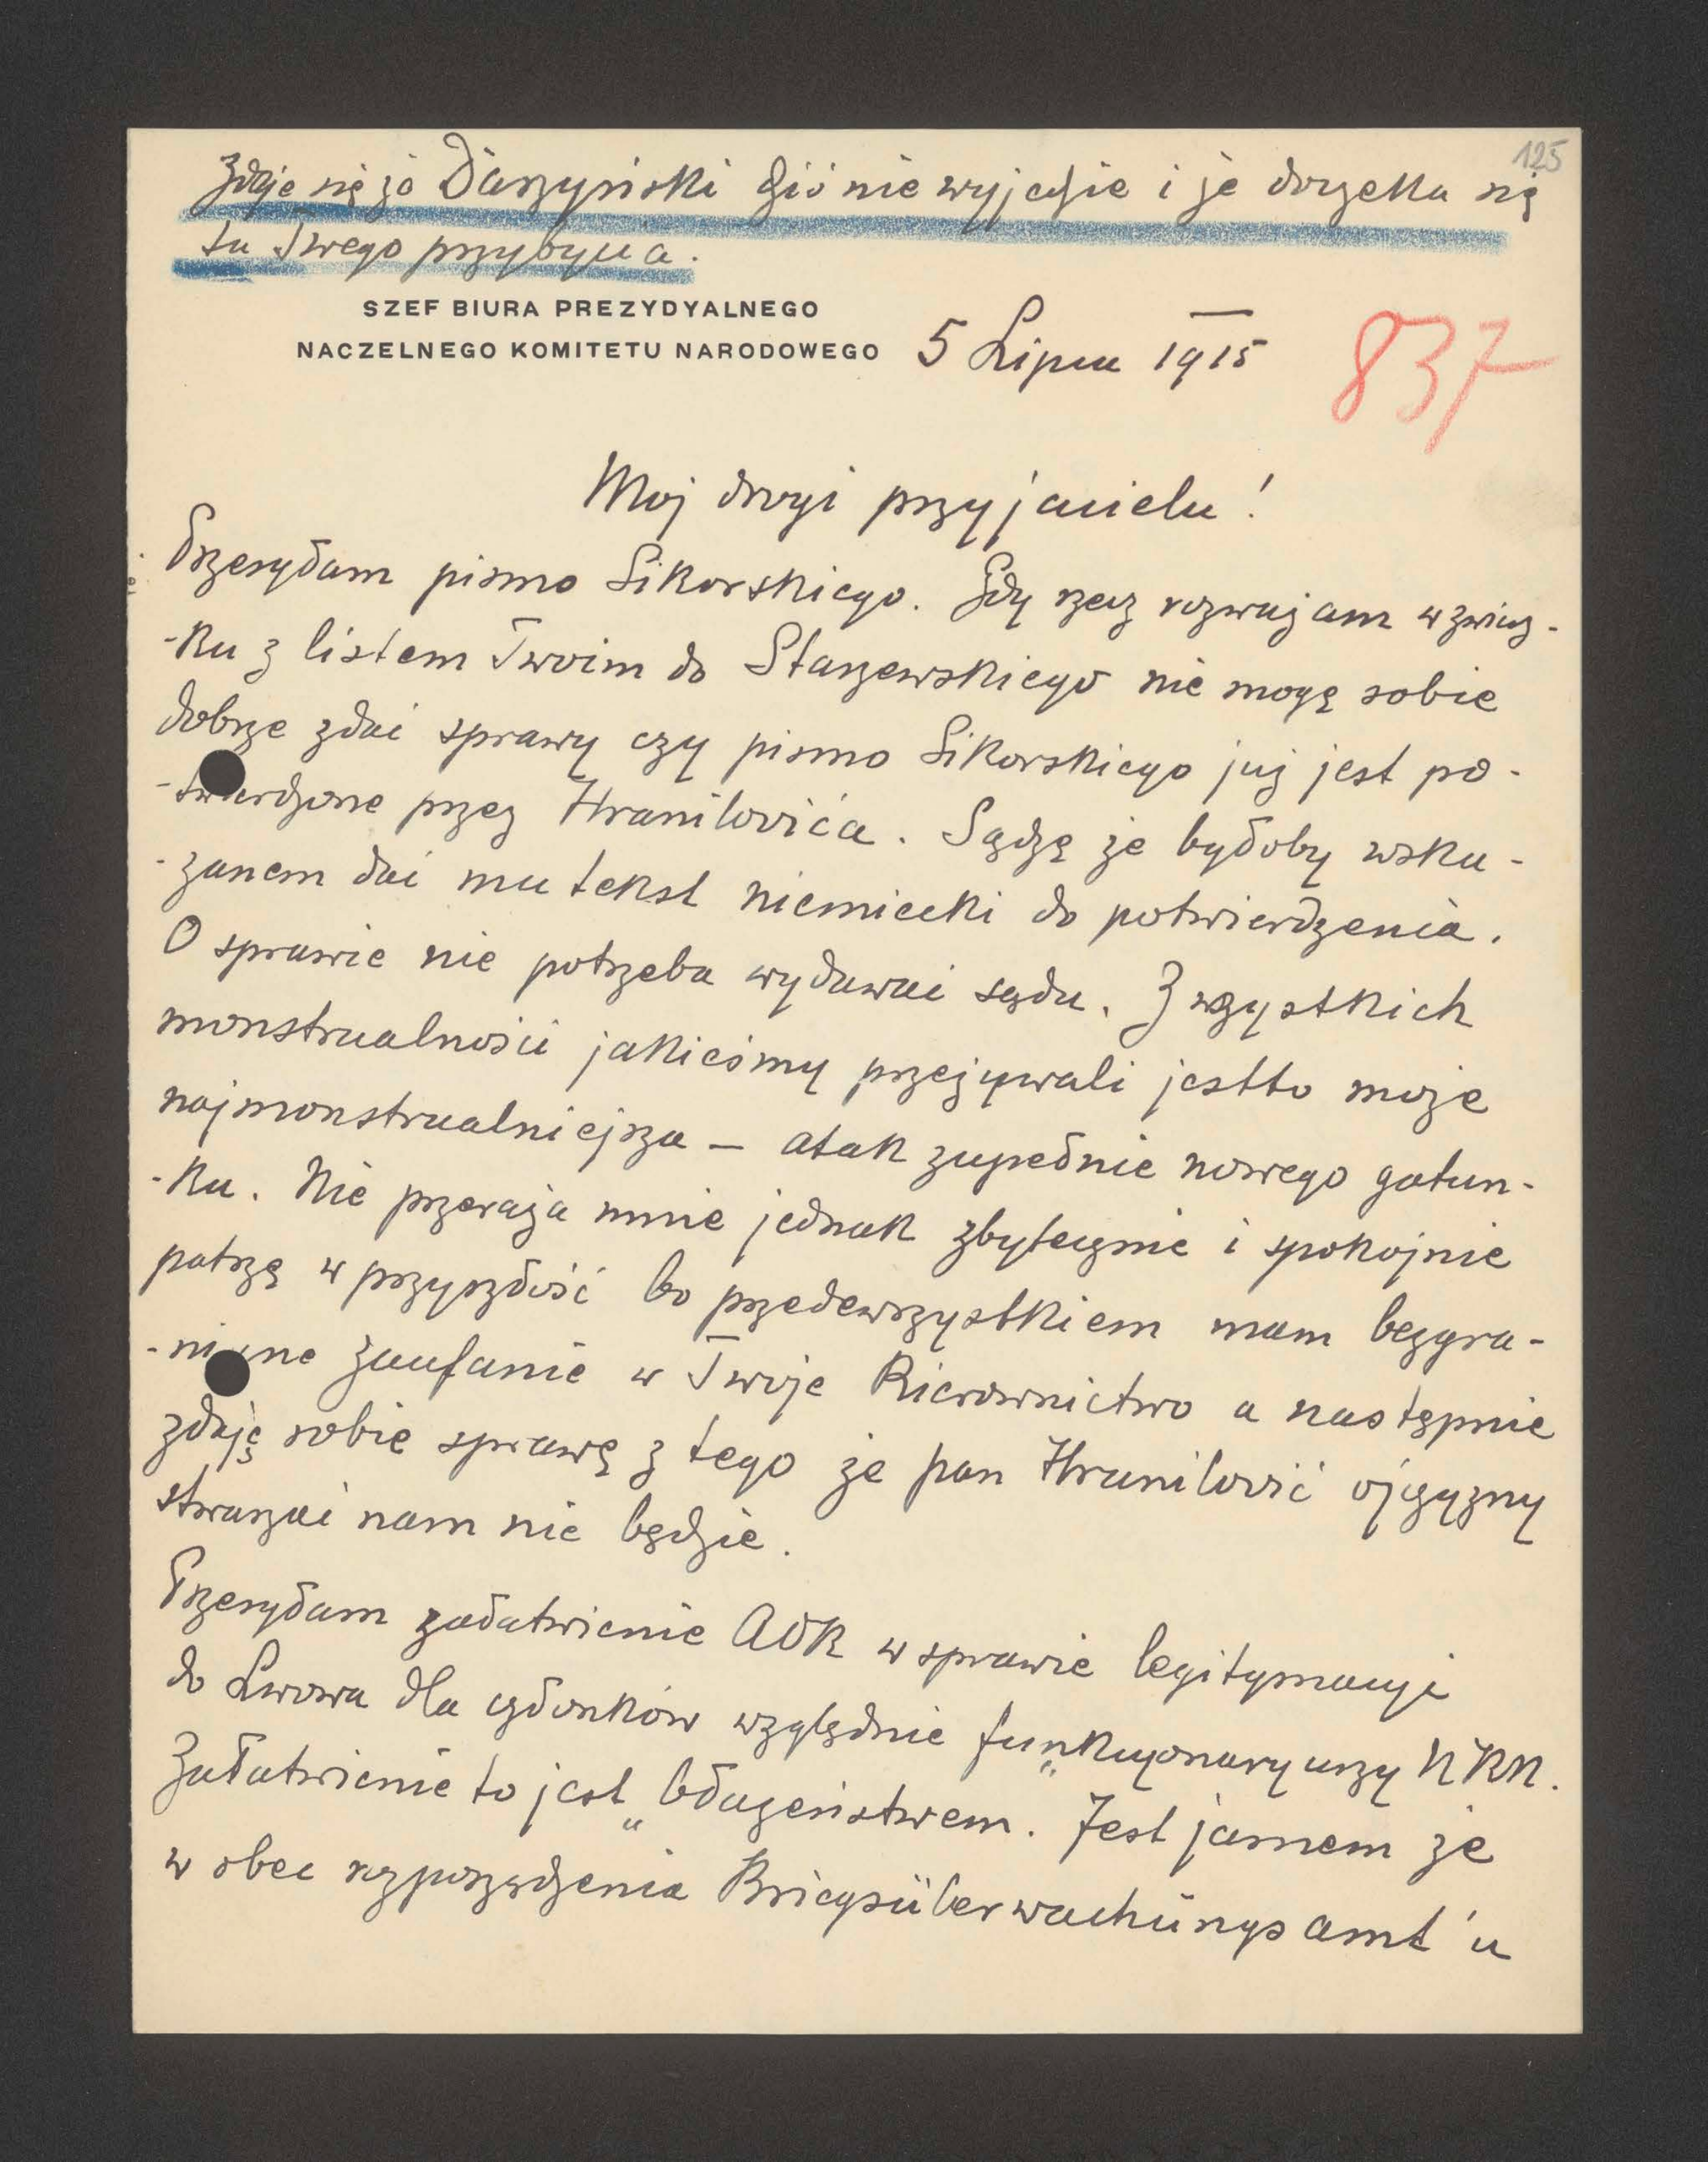 125
Zdaje się że Daszyński dziś nie wyjedzie i że doczeka się
tu Twego przybycia.
SZEF BIURA PREZYDYALNEGO
NACZELNEGO KOMITETU NARODOWEGO 5 Lipca 1915
837
Moj drogi przyjacielu!
Przesyłam pismo Sikorskiego. Gdy rzecz rozważam w związ-
-ku z listem Twoim do Staszewskiego nie mogę sobie
dobrze zdać sprawy czy pismo Sikorskiego już jest po-
-twierdzone przez Hranilovića. Sądzę że byłoby wska-
-zanem dać mu tekst niemiecki do potwierdzenia.
O sprawie nie potrzeba wydawać sądu. Z wszystkich
monstrualności jakieśmy przeżywali jestto może
najmonstrualniejsza – atak zupełnie nowego gatun-
-ku. Nie przeraża mnie jednak zbytecznie i spokojnie
patrzę w przyszłość bo przedewszystkiem mam bezgra-
-niczne zaufanie w Twoje kierownictwo a następnie
zdaję sobie sprawę z tego że pan Hranilović ojczyzny
stwarzać nam nie będzie.
Przesyłam załatwienie AOK w sprawie legitymacyi
do Lwowa dla członków względnie funkcyonaryuszy NKN.
Załatwienie to jest „błazeństwem". Jest jasnem że
w obec rozporządzenia Kriegsüberwachungsamt'u